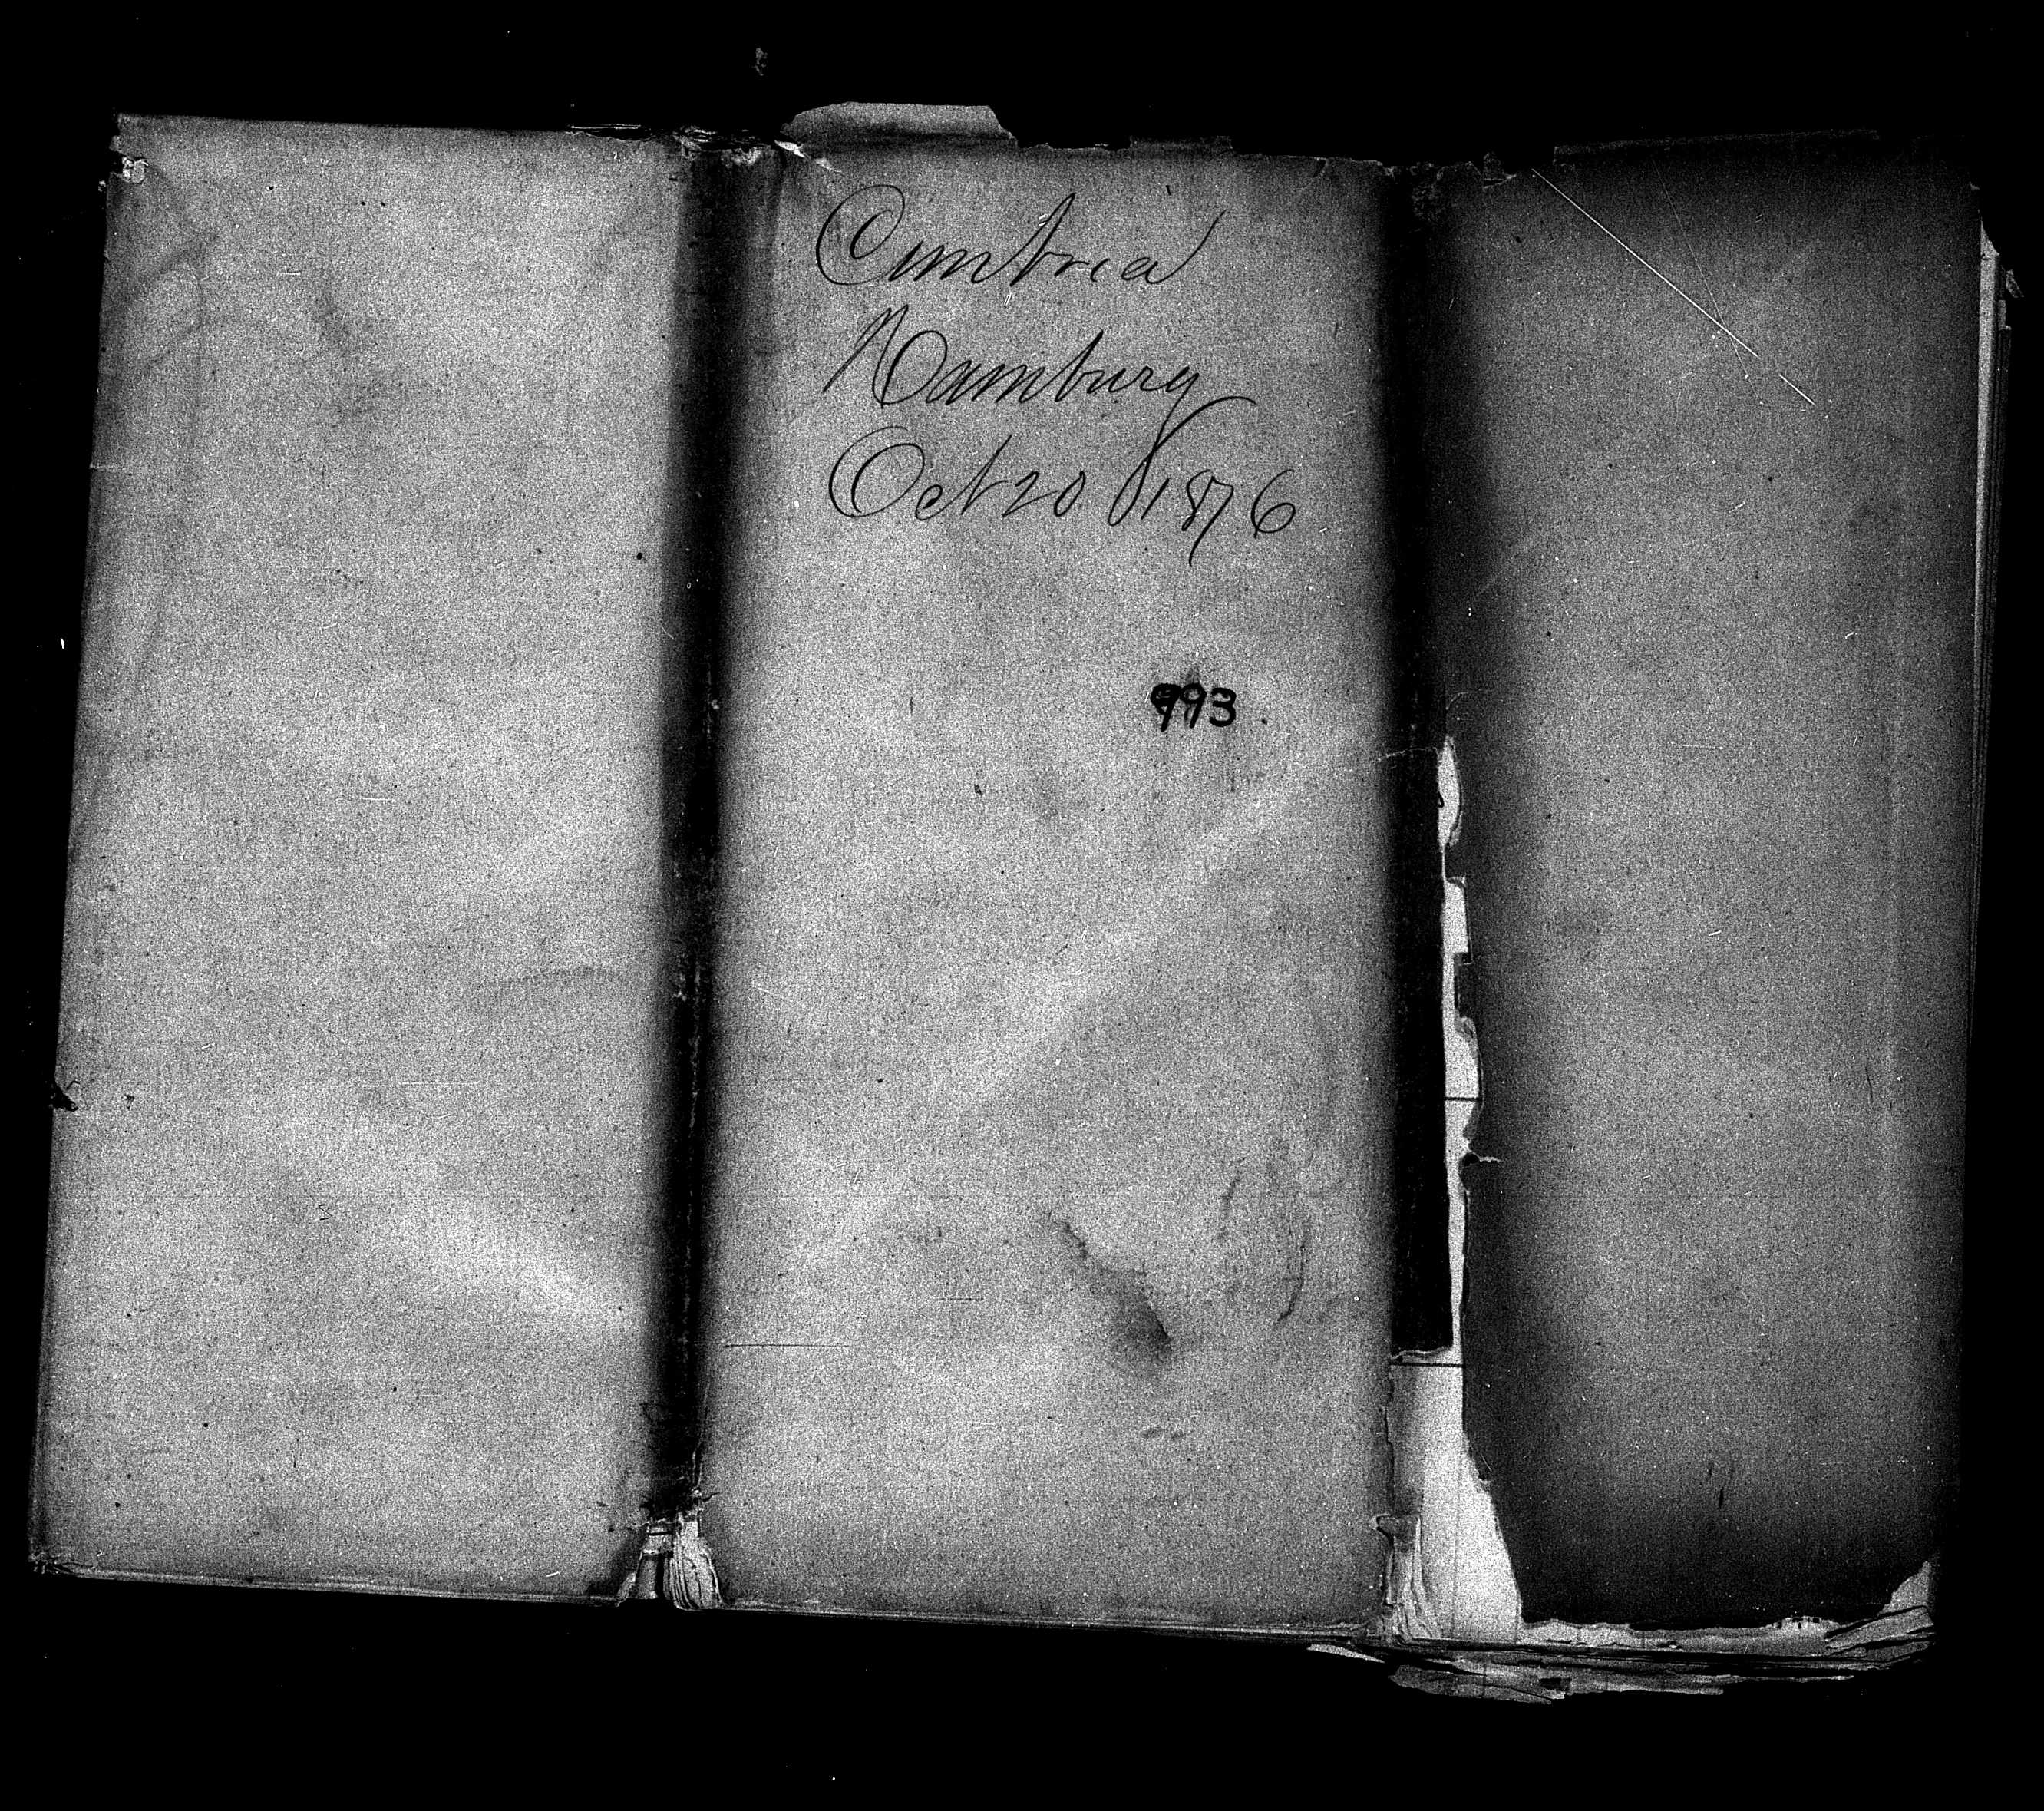 Cimbria
Hamburg
Oct 20. 1876
993